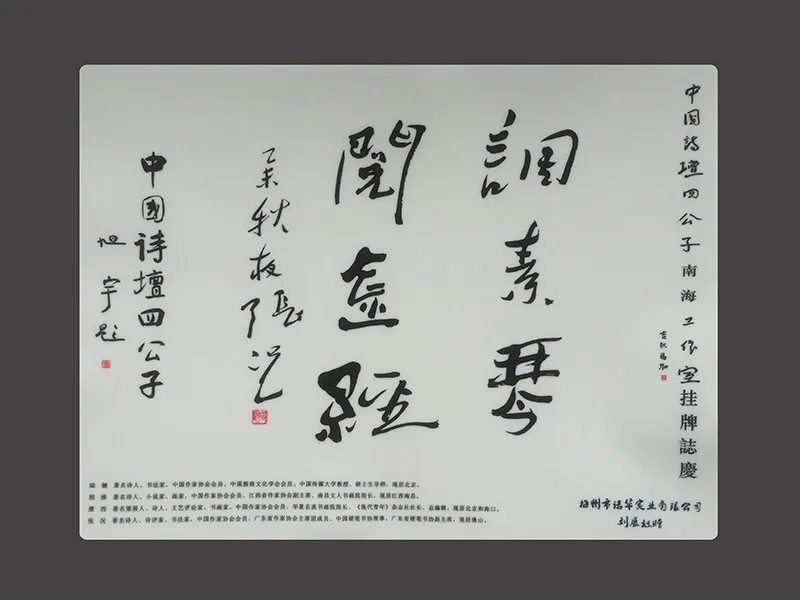 中国詩壇四公子南海工作室挂牌誌慶
吉狄馬加
調素琴
閱虛經
乙未秋夜張况
中國诗壇四公子
旭宇题
陆健 著名诗人、书法家,中国作家协会会员,中国殷商文化学会会员,中国传媒大学教授、硕士生导师,现居北京。
程维 著名诗人、小说家、画家,中国作家协会会员,江西省作家协会副主席,南昌文人书画院院长,现居江西南昌。
雁西 著名策展人、诗人、文艺评论家、书画家,中国作家协会会员,华夏名家书画院院长,《现代青年》杂志社社长、总编辑,现居北京和海口。
张况 著名诗人、诗评家、书法家,中国作家协会会员,广东省作家协会主席团成员,中国硬笔书协理事,广东省硬笔书协副主席,现居佛山。
梅州市诺华实业有限公司
刘展标赠